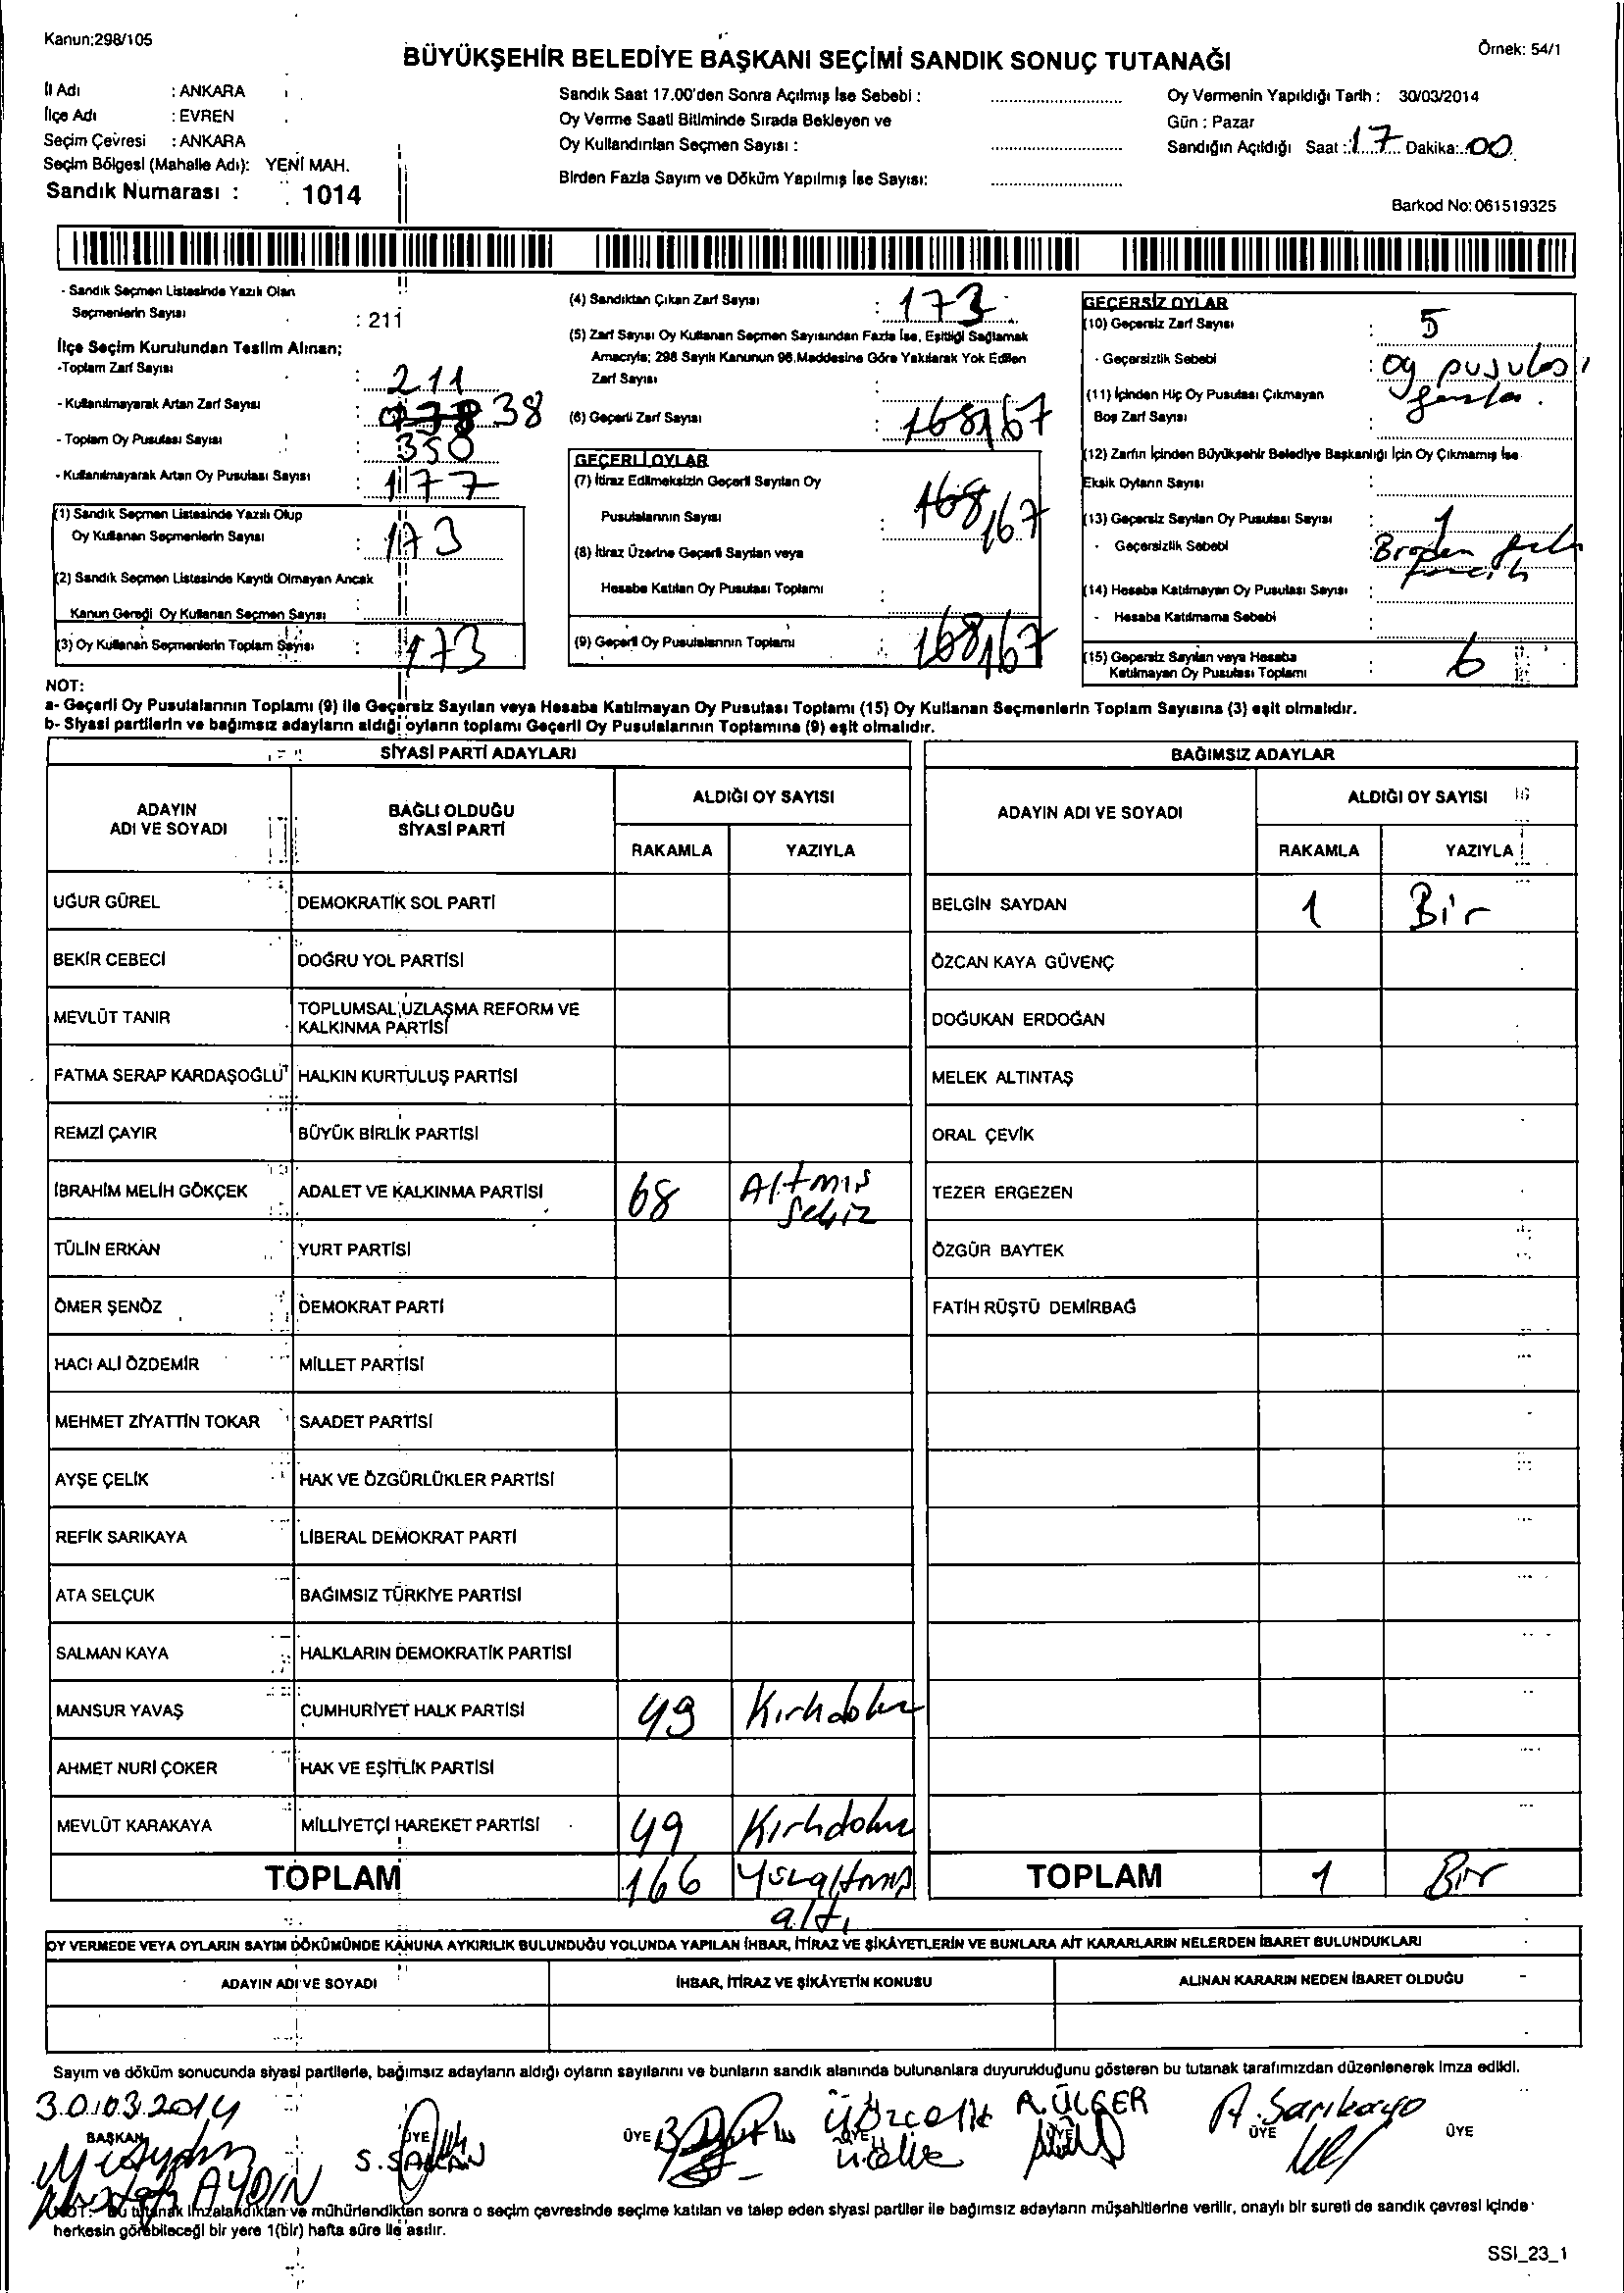 Kanun:298/105
BÜYÜKŞEHİR BELEDİYE BAŞKANI SEÇİMİ SANDIK SONUÇ TUTANAĞI
Örnek: 54/1
İl Adı : ANKARA
İlçe Adı : EVREN
Seçim Çevresi : ANKARA
Seçim Bölgesi (Mahalle Adı): YENİ MAH.
Sandık Numarası : 1014
Sandık Saat 17.00'den Sonra Açılmış İse Sebebi :
Oy Verme Saati Bitiminde Sırada Bekleyen ve
Oy Kullandırılan Seçmen Sayısı :
Birden Fazla Sayım ve Döküm Yapılmış İse Sayısı:
Oy Vermenin Yapıldığı Tarih : 30/03/2014
Gün : Pazar
Sandığın Açıldığı Saat : 17 Dakika: 00
Barkod No: 061519325
- Sandık Seçmen Listesinde Yazılı Olan
Seçmenlerin Sayısı : 211
İlçe Seçim Kurulundan Teslim Alınan;
-Toplam Zarf Sayısı : 211
- Kullanılmayarak Artan Zarf Sayısı : 38
- Toplam Oy Pusulası Sayısı : 350
- Kullanılmayarak Artan Oy Pusulası Sayısı : 177
(1) Sandık Seçmen Listesinde Yazılı Olup
Oy Kullanan Seçmenlerin Sayısı : 173
(2) Sandık Seçmen Listesinde Kayıtlı Olmayan Ancak
Kanun Gereği Oy Kullanan Seçmen Sayısı
(3) Oy Kullanan Seçmenlerin Toplam Sayısı : 173
(4) Sandıktan Çıkan Zarf Sayısı : 173
(5) Zarf Sayısı Oy Kullanan Seçmen Sayısından Fazla İse, Eşitliği Sağlamak
Amacıyla; 298 Sayılı Kanunun 98.Maddesine Göre Yakılarak Yok Edilen
Zarf Sayısı :
(6) Geçerli Zarf Sayısı : 168 167
GEÇERLİ OYLAR
(7) İtiraz Edilmeksizin Geçerli Sayılan Oy
Pusulalarının Sayısı : 168 167
(8) İtiraz Üzerine Geçerli Sayılan veya
Hesaba Katılan Oy Pusulası Toplamı :
(9) Geçerli Oy Pusulalarının Toplamı : 168 167
GEÇERSİZ OYLAR
(10) Geçersiz Zarf Sayısı : 5
- Geçersizlik Sebebi : oy pusulası
fazla.
(11) İçinden Hiç Oy Pusulası Çıkmayan
Boş Zarf Sayısı :
(12) Zarfın İçinden Büyükşehir Belediye Başkanlığı İçin Oy Çıkmamış İse
Eksik Oyların Sayısı :
(13) Geçersiz Sayılan Oy Pusulası Sayısı : 1
- Geçersizlik Sebebi :
(14) Hesaba Katılmayan Oy Pusulası Sayısı :
- Hesaba Katılmama Sebebi :
(15) Geçersiz Sayılan veya Hesaba
Katılmayan Oy Pusulası Toplamı : 6
NOT:
a- Geçerli Oy Pusulalarının Toplamı (9) ile Geçersiz Sayılan veya Hesaba Katılmayan Oy Pusulası Toplamı (15) Oy Kullanan Seçmenlerin Toplam Sayısına (3) eşit olmalıdır.
b- Siyasi partilerin ve bağımsız adayların aldığı oyların toplamı Geçerli Oy Pusulalarının Toplamına (9) eşit olmalıdır.
SİYASİ PARTİ ADAYLARI
ADAYIN ADI VE SOYADI BAĞLI OLDUĞU SİYASİ PARTİ ALDIĞI OY SAYISI
RAKAMLA YAZIYLA
UĞUR GÜREL DEMOKRATİK SOL PARTİ
BEKİR CEBECİ DOĞRU YOL PARTİSİ
MEVLÜT TANIR TOPLUMSAL UZLAŞMA REFORM VE
KALKINMA PARTİSİ
FATMA SERAP KARDAŞOĞLU HALKIN KURTULUŞ PARTİSİ
REMZİ ÇAYIR BÜYÜK BİRLİK PARTİSİ
İBRAHİM MELİH GÖKÇEK ADALET VE KALKINMA PARTİSİ 68 Altmış
sekiz
TÜLİN ERKAN YURT PARTİSİ
ÖMER ŞENÖZ DEMOKRAT PARTİ
HACI ALİ ÖZDEMİR MİLLET PARTİSİ
MEHMET ZİYATTİN TOKAR SAADET PARTİSİ
AYŞE ÇELİK HAK VE ÖZGÜRLÜKLER PARTİSİ
REFİK SARIKAYA LİBERAL DEMOKRAT PARTİ
ATA SELÇUK BAĞIMSIZ TÜRKİYE PARTİSİ
SALMAN KAYA HALKLARIN DEMOKRATİK PARTİSİ
MANSUR YAVAŞ CUMHURİYET HALK PARTİSİ 49 Kırkdokuz
AHMET NURİ ÇOKER HAK VE EŞİTLİK PARTİSİ
MEVLÜT KARAKAYA MİLLİYETÇİ HAREKET PARTİSİ 49 Kırkdokuz
TOPLAM 166 Yüzaltmış
altı
BAĞIMSIZ ADAYLAR
ADAYIN ADI VE SOYADI ALDIĞI OY SAYISI
RAKAMLA YAZIYLA
BELGİN SAYDAN 1 Bir
ÖZCAN KAYA GÜVENÇ
DOĞUKAN ERDOĞAN
MELEK ALTINTAŞ
ORAL ÇEVİK
TEZER ERGEZEN
ÖZGÜR BAYTEK
FATİH RÜŞTÜ DEMİRBAĞ
TOPLAM 1 Bir
OY VERMEDE VEYA OYLARIN SAYIM DÖKÜMÜNDE KANUNA AYKIRILIK BULUNDUĞU YOLUNDA YAPILAN İHBAR, İTİRAZ VE ŞİKÂYETLERİN VE BUNLARA AİT KARARLARIN NELERDEN İBARET BULUNDUKLARI
ADAYIN ADI VE SOYADI İHBAR, İTİRAZ VE ŞİKÂYETİN KONUSU ALINAN KARARIN NEDEN İBARET OLDUĞU
Sayım ve döküm sonucunda siyasi partilerle, bağımsız adayların aldığı oyların sayılarını ve bunların sandık alanında bulunanlara duyurulduğunu gösteren bu tutanak tarafımızdan düzenlenerek imza edildi.
30.03.2014 A.ÜLGER A.Sarıkaya
BAŞKAN ÜYE ÜYE ÜYE ÜYE ÜYE ÜYE
Mustafa AYDIN
NOT: Bu tutanak imzalandıktan ve mühürlendikten sonra o seçim çevresinde seçime katılan ve talep eden siyasi partiler ile bağımsız adayların müşahitlerine verilir, onaylı bir sureti de sandık çevresi içinde
herkesin görebileceği bir yere 1(bir) hafta süre ile asılır.
SSI_23_1